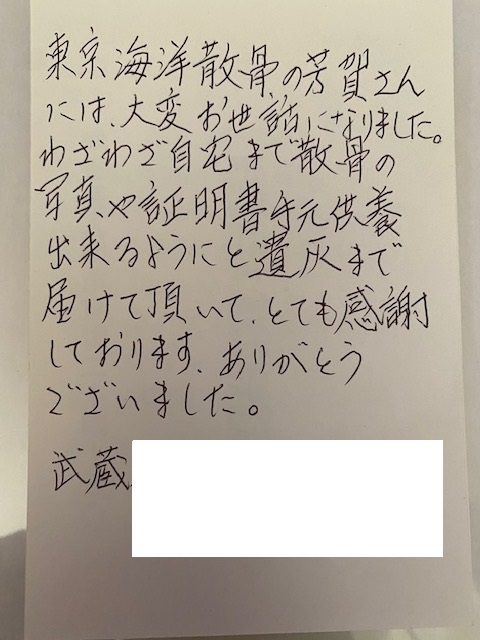 東京海洋散骨の芳賀さん
には、大変お世話になりました。
わざわざ自宅まで散骨の
写真や証明書手元供養
出来るようにと遺灰まで
届けて頂いて、とても感謝
しております、ありがとう
ございました。
武蔵